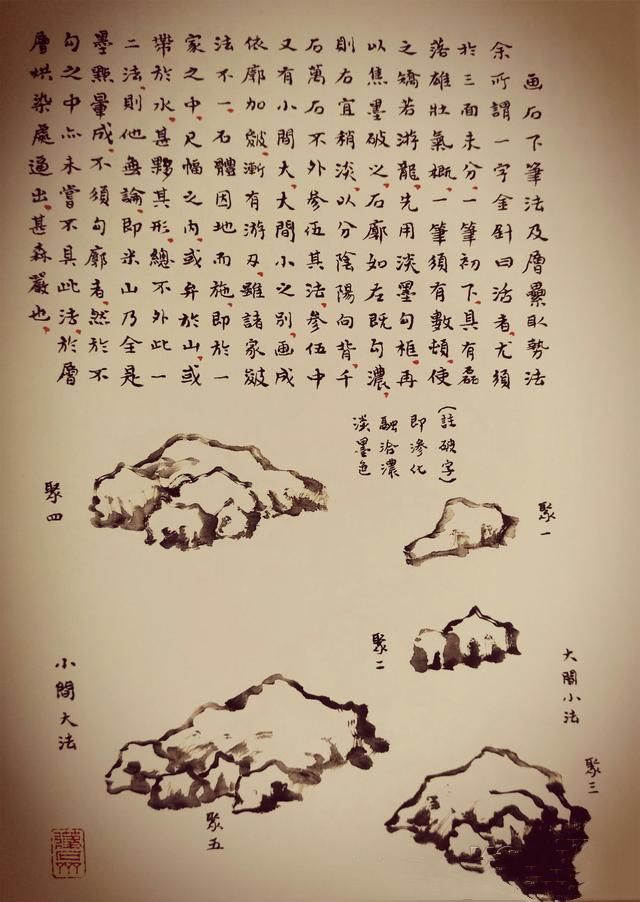 画石下筆法及層纍取勢法
余所謂一字金針曰活者尤須
於三面未分一筆初下具有磊
落雄壯氣概一筆須有數頓使
之矯若游龍先用淡墨勾框再
以焦墨破之石廓如左既勾濃
則右宜稍淡以分陰陽向背千
石萬石不外參伍其法參伍中
又有小間大大間小之別画成
依廓加皴漸有游刃雖諸家皴
法不一石體因地而施即於一
家之中尺幅之内或弁於山或
帶於水甚夥其形總不外此一
二法則他無論即米山乃全是
墨點暈成不須勾廓者然於不
勾之中亦未嘗不具此法於層
層烘染處逼出甚森嚴也
(註破字)
即滲化
融洽濃
淡墨色
聚一
聚四
聚二
大間小法
聚三
小間大法
聚五